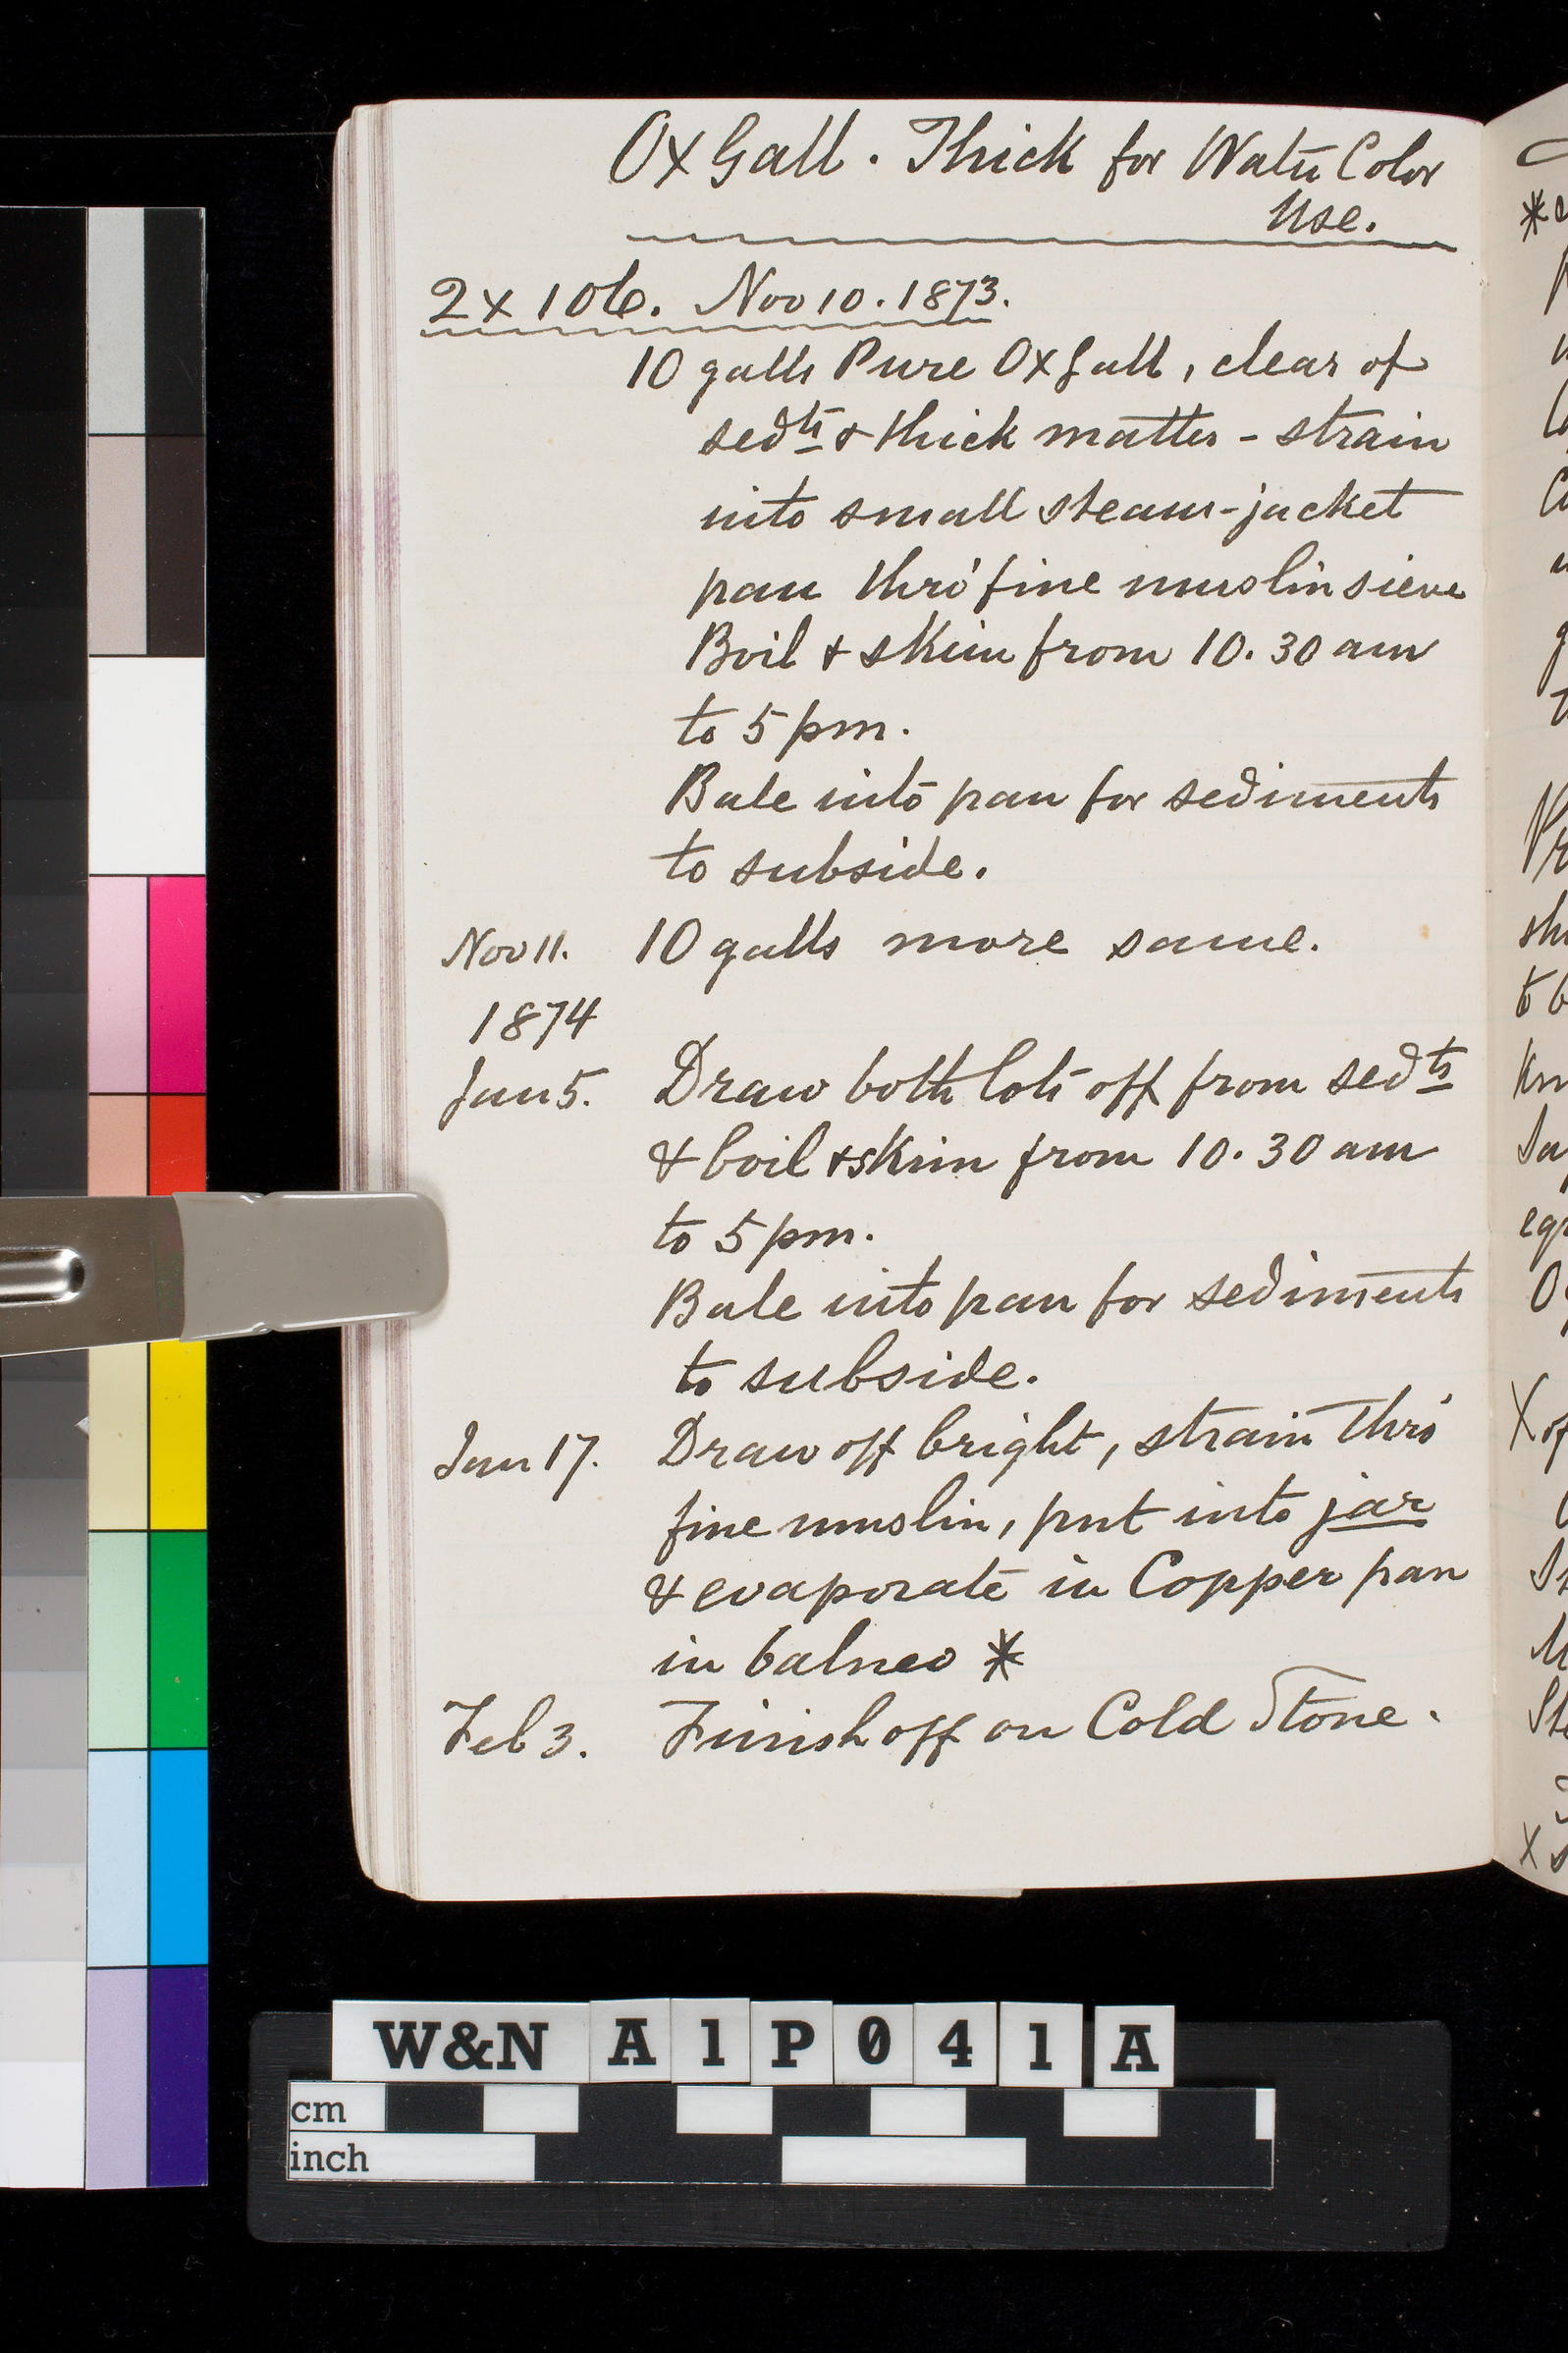 Ox Gall. Thick for Water Color
Use.
2 x 106. Nov 10. 1873.
10 galls Pure Ox Gall, clear of
sedts & thick matter - strain
into small steam-jacket
pan thro' fine muslin sieve
Boil & skim from 10.30 am
to 5 pm.
Bale into pan for sediments
to subside.
Nov 11. 10 galls more same.
1874
Jan 5. Draw both lots off from sedts
& boil & skim from 10.30 am
to 5 pm.
Bale into pan for sediments
to subside.
Jan 17. Draw off bright, strain thro'
fine muslin, put into jar
& evaporate in Copper pan
in balneo *
Feb 3. Finish off on Cold Stone.
W&N A1P041A
cm
inch